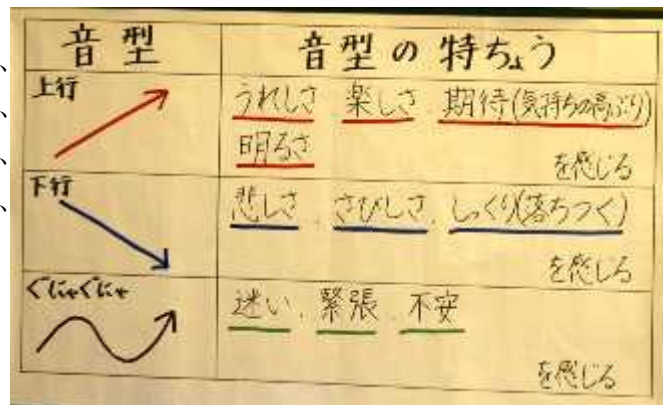 音型 音型の特ちょう
上行
うれしさ 楽しさ、期待(気持ちの高ぶり)
明るさ
を感じる
下行
悲しさ、さびしさ、しっくり(落ちつく)
を感じる
ぐにゃぐにゃ
迷い、緊張、不安
を感じる